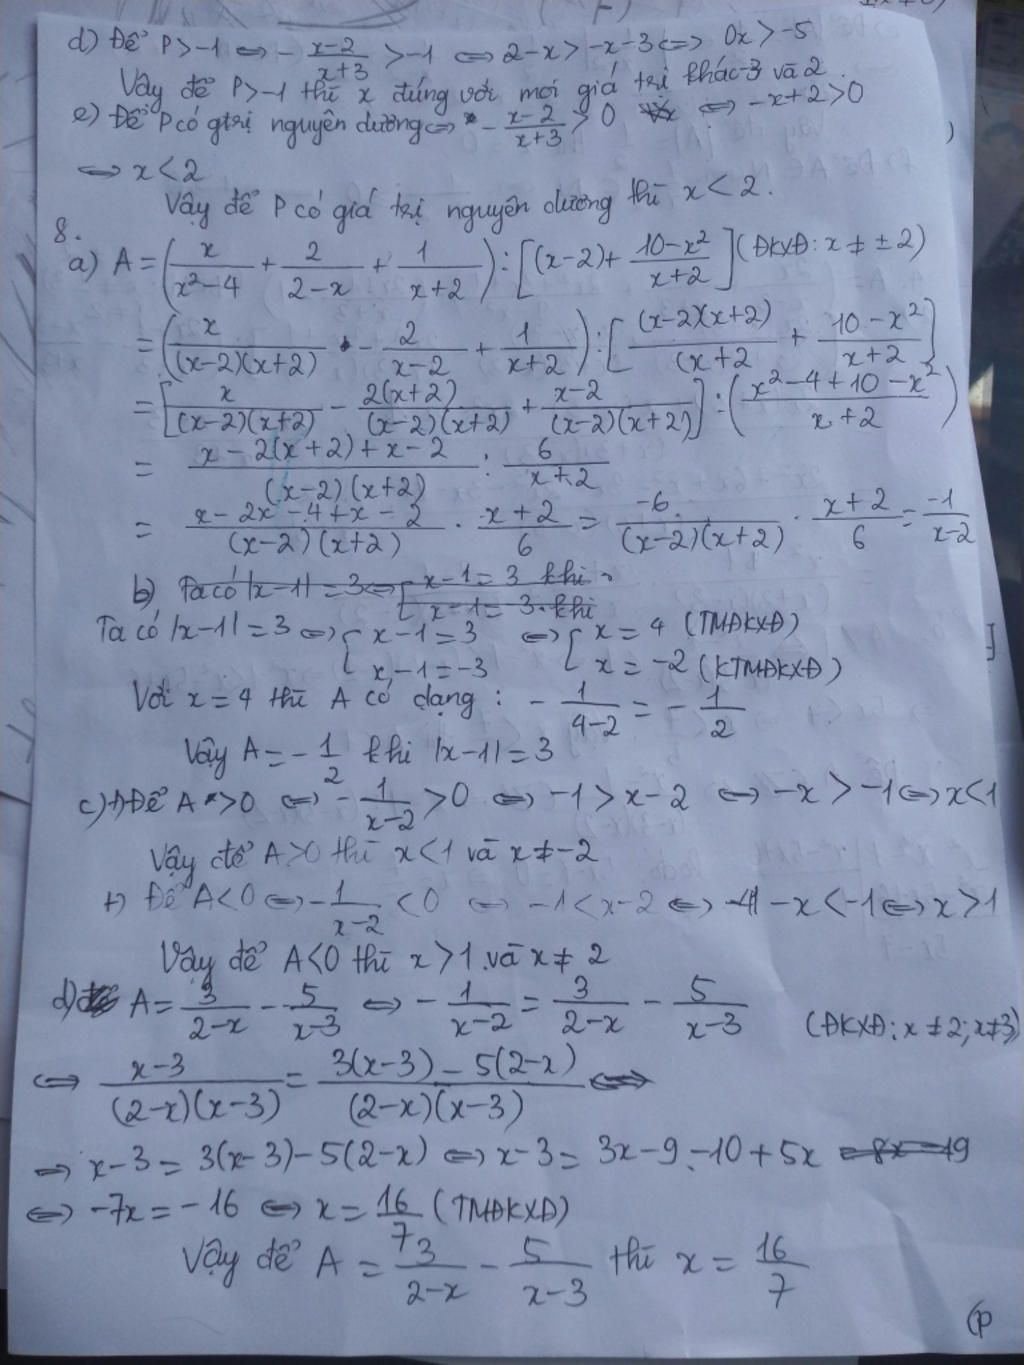 d) Để P > -1 ⇔ - (x-2)/(x+3) > -1 ⇔ 2-x > -x-3 ⇔ 0x > -5
Vậy để P > -1 thì x đúng với mọi giá trị khác -3 và 2.
e) Để P có gtrị nguyên dương ⇔ - (x-2)/(x+3) > 0 ⇔ -x+2 > 0
⇔ x < 2
Vậy để P có giá trị nguyên dương thì x < 2.
8.
a) A = (x/(x²-4) + 2/(2-x) + 1/(x+2)) : [(x-2) + (10-x²)/(x+2)] (ĐKXĐ: x ≠ ±2)
= (x/((x-2)(x+2)) - 2/(x-2) + 1/(x+2)) : [(x-2)(x+2)/(x+2 + (10-x²)/(x+2)]
= [x/((x-2)(x+2)) - 2(x+2)/((x-2)(x+2)) + (x-2)/((x-2)(x+2))] : ((x²-4+10-x²)/(x+2))
= (x-2(x+2)+x-2)/((x-2)(x+2)) : 6/(x+2)
= (x-2x-4+x-2)/((x-2)(x+2)) · (x+2)/6 = -6/((x-2)(x+2)) · (x+2)/6 = -1/(x-2)
b) Ta có |x-1| = 3 ⇔ [x-1 = 3 khi
x-1 = 3 khi
Ta có |x-1| = 3 ⇔ [x-1 = 3 ⇔ [x = 4 (TMĐKXĐ)
x-1 = -3 x = -2 (KTMĐKXĐ)
Với x = 4 thì A có dạng : - 1/(4-2) = - 1/2
Vậy A = - 1/2 khi |x-1| = 3
c) +) Để A > 0 ⇔ - 1/(x-2) > 0 ⇔ -1 > x-2 ⇔ -x > -1 ⇔ x < 1
Vậy để A > 0 thì x < 1 và x ≠ -2
+) Để A < 0 ⇔ - 1/(x-2) < 0 ⇔ -1 < x-2 ⇔ -x < -1 ⇔ x > 1
Vậy để A < 0 thì x > 1 và x ≠ 2
d) A = 3/(2-x) - 5/(x-3) ⇔ - 1/(x-2) = 3/(2-x) - 5/(x-3) (ĐKXĐ: x ≠ 2; x ≠ 3)
⇔ (x-3)/((2-x)(x-3)) = (3(x-3) - 5(2-x))/((2-x)(x-3)) ⇔
⇒ x-3 = 3(x-3) - 5(2-x) ⇔ x-3 = 3x-9-10+5x = 8x-19
⇔ -7x = -16 ⇔ x = 16/7 (TMĐKXĐ)
Vậy để A = 3/(2-x) - 5/(x-3) thì x = 16/7